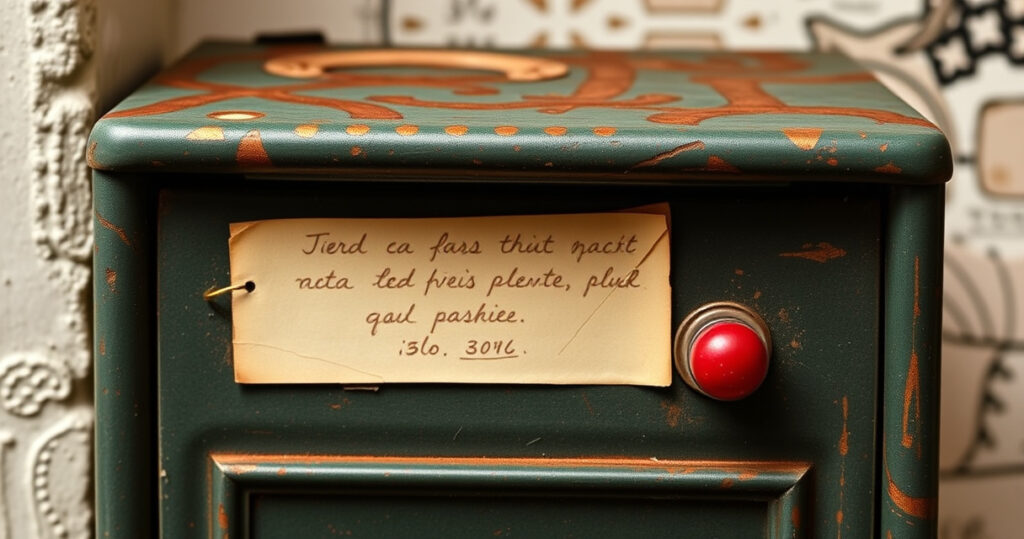 Jierd ca fars thiit nackt
nacta led freis plente, pluk
qaul pashiee.
i3lo. 3046.